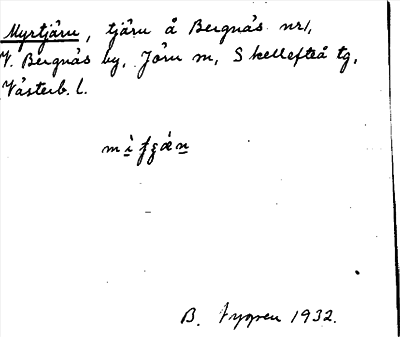 Myrtjärn, tjärn å Bergnäs nr 1,
V. Bergnäs by, Jörn sn, Skellefteå tg,
Västerb. l.
B. Nygren 1932.